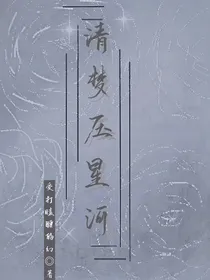 清梦压星河
爱打瞌睡的幻◎著